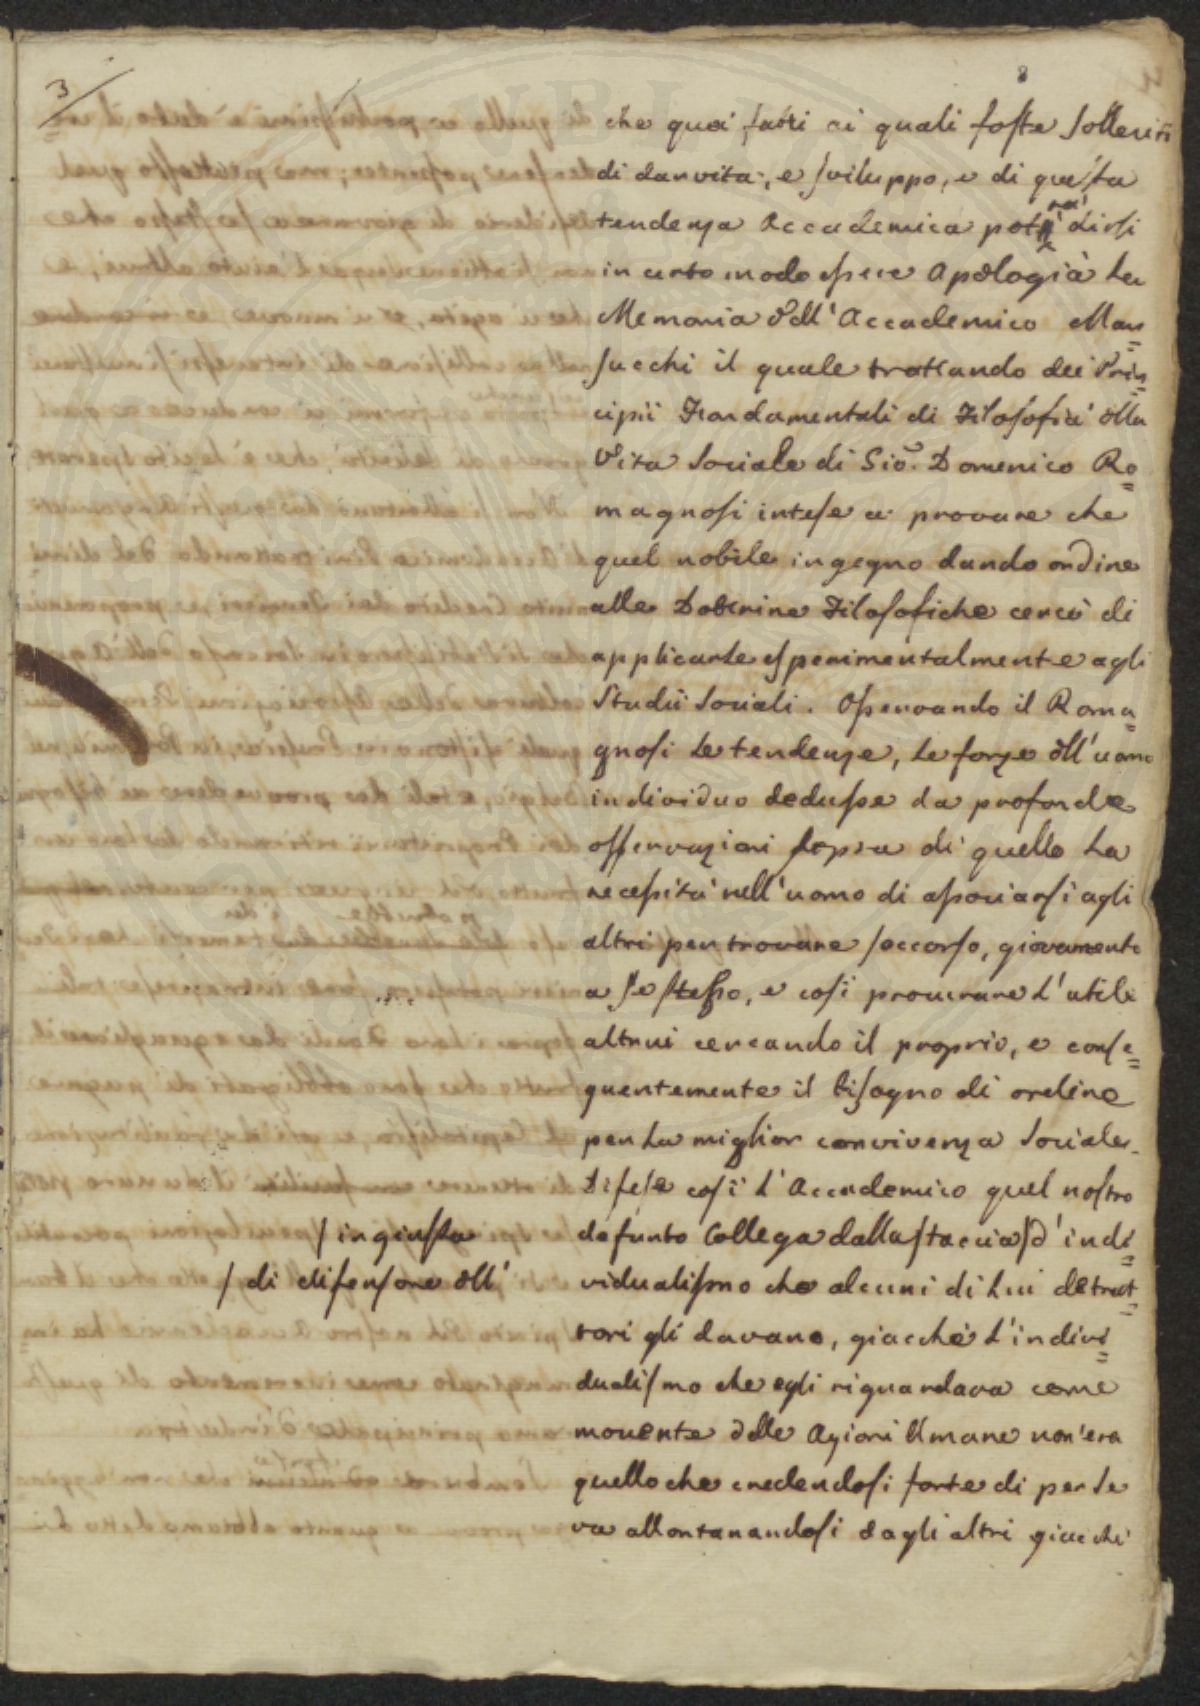 3
8
che quei fatti ai quali foste solleciti
di dar vita, e sviluppo, e di questa
tendenza Accademica potrà dirsi
in certo modo essere Apologià la
Memoria dell'Accademico Man=
succhi il quale trattando dei Prin=
cipii Fondamentali di Filosofia della
Vita Sociale di Gio. Domenico Ro=
magnosi intese a provare che
quel nobile ingegno dando ordine
alle Dottrine Filosofiche cercò di
applicarle esperimentalmente agli
Studii Sociali. Osservando il Roma=
gnosi le tendenze, le forze dell'uomo
individuo dedusse da profonde
osservazioni sopra di quelle la
necessità nell'uomo di associarsi agli
altri per trovare soccorso, giovamento
a se stesso, e così procurare l'utile
altrui cercando il proprio, e conse=
quentemente il bisogno di ordine
per la miglior convivenza sociale.
Difese così l'Accademico quel nostro
defunto Collega dalla staccia / d'indi=
/ ingiusta
vidualismo che alcuni di lui detrat=
/ di difensore dell'
tori gli davano, giacchè l'indivi=
dualismo che egli riguardava come
movente delle Azioni Umane non era
quello che credendosi forte di per se
va allontanandosi dagli altri giacchè